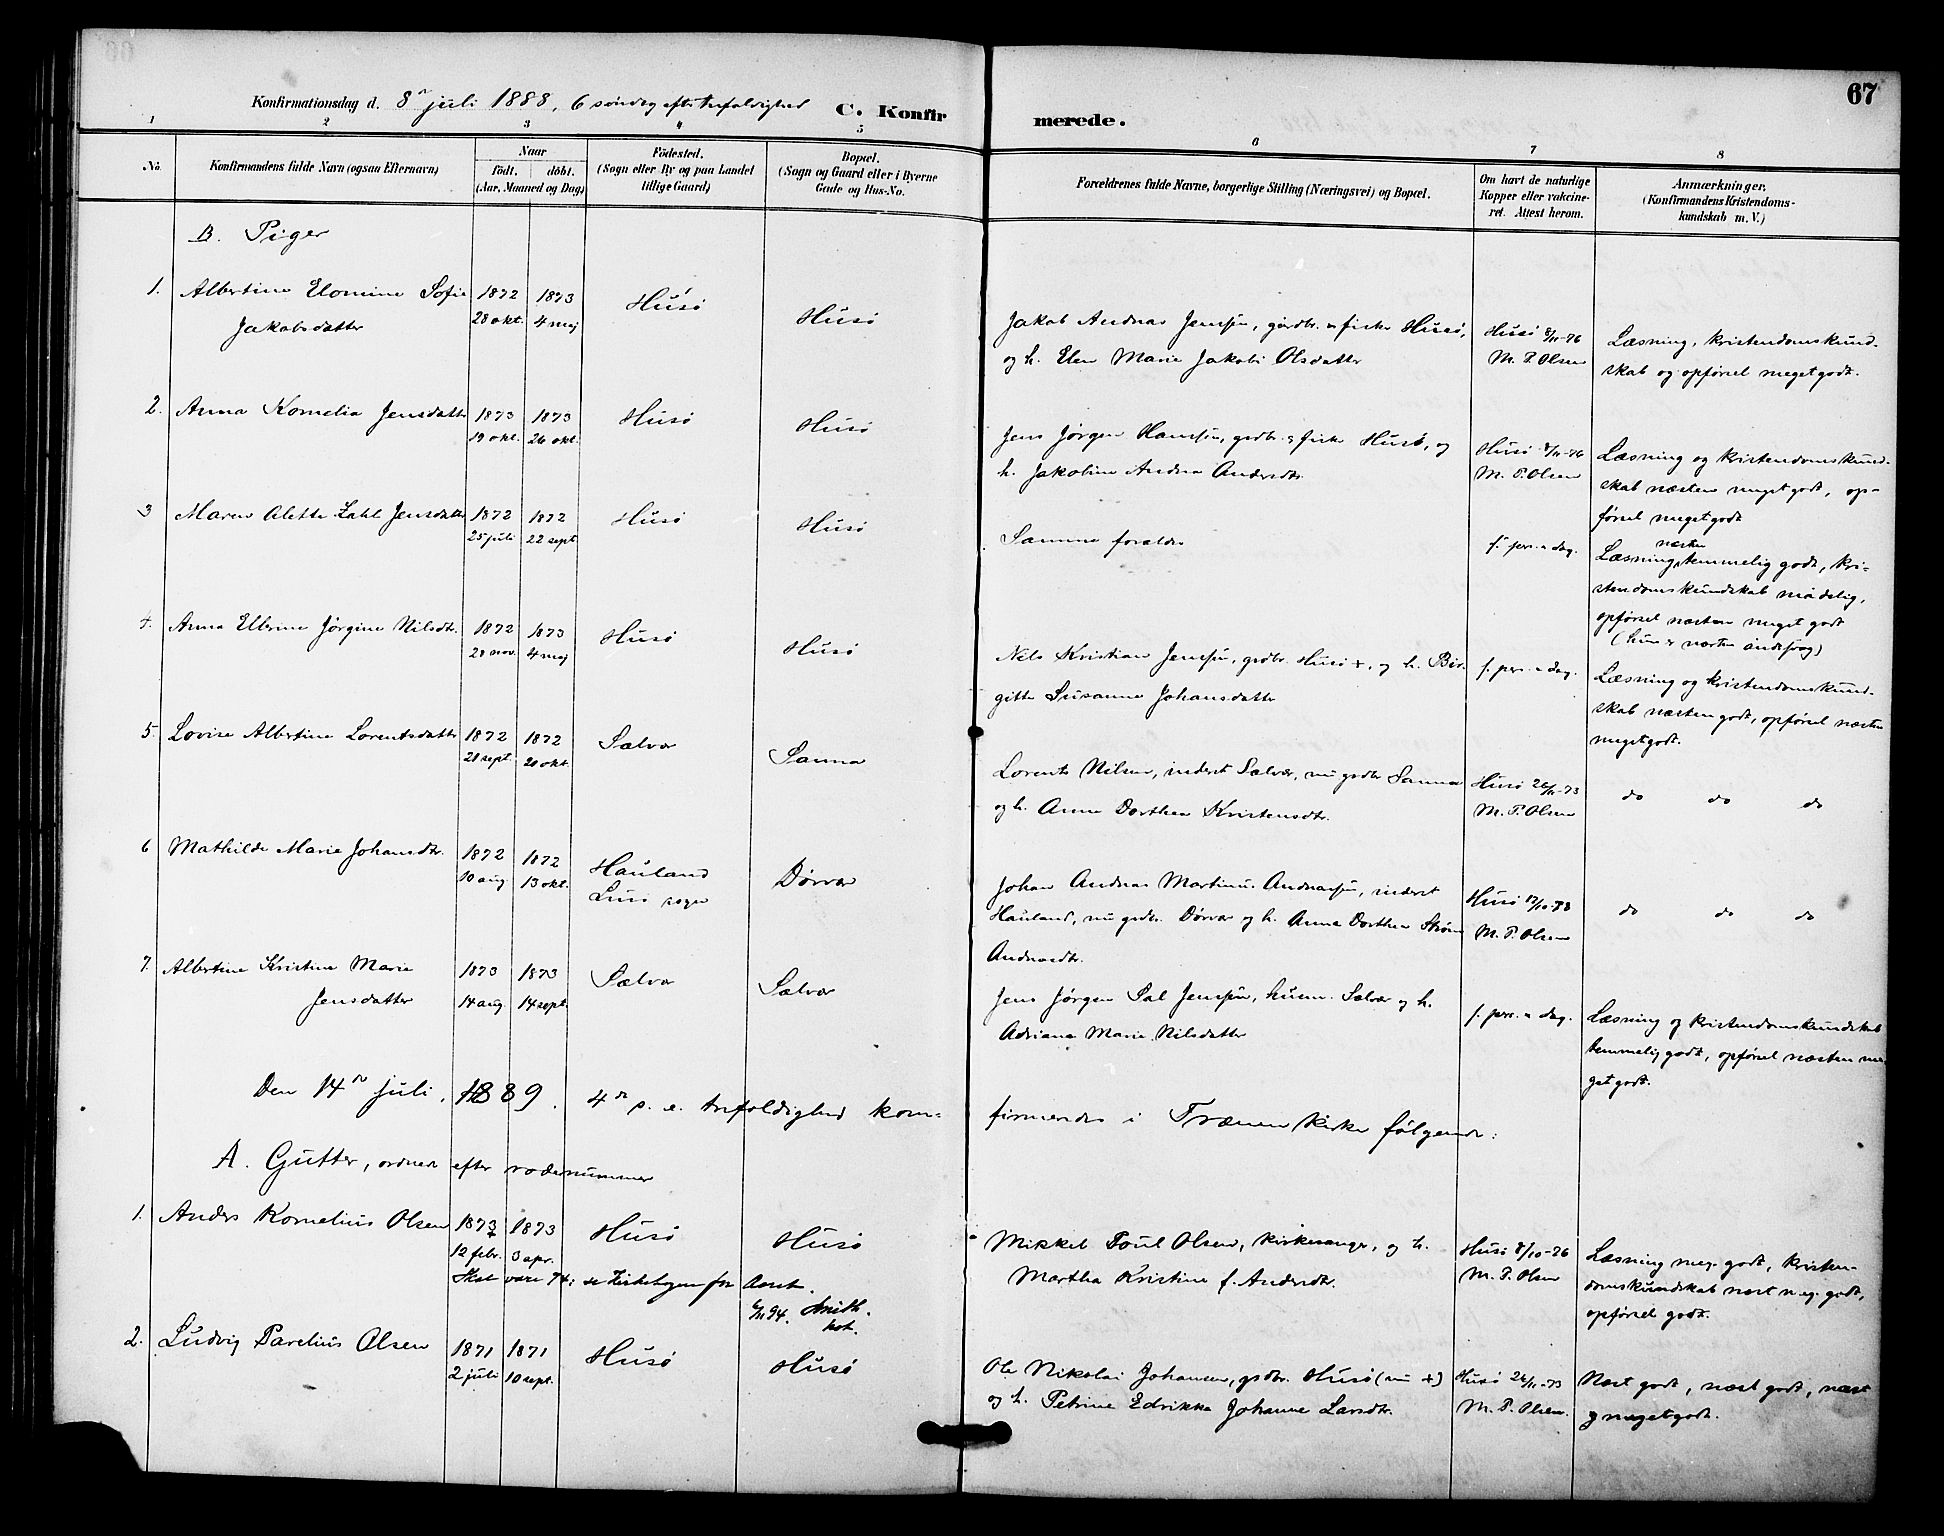 67
Konfirmationsdag d. 8de juli 1888, 6 søndag efter trefoldighed C. Konfirmerede.
1 2 3 4 5 6 7 8
No. Konfirmandens fulde Navn (ogsaa Efternavn) Naar födt. döbt. (Aar, Maaned og Dag) Födested. (Sogn eller By og paa Landet tillige Gaard) Bopæl. (Sogn og Gaard eller i Byerne Gade og Hus-No. Forældrenes fulde Navne, borgerlige Stilling (Næringsvei) og Bopæl. Om havt de naturlige Kopper eller vakcineret. Attest herom. Anmærkninger. (Konfirmandens Kristendomskundskab m. V.)
B. Piger
1. Albertine Elomine Sofie Jakobsdatter 1872 28 okt. 1873 4 maj Husø Husø
Jakob Andreas Jenssøn, gårdbr. & fisker Husø,
og h. Elen Marie Jakobi Olsdatter
Husø 8/11-76
M. P. Olsen
Læsning, kristendomskund-
skab og opførsel meget godt.
2. Anna Kornelia Jensdatter 1873 19 okt. 1873 26 okt. Husø Husø
Jens Jørgen Hanssøn, grdbr. & fisker Husø, og
h. Jakobine Andrea Andersdtr.
Husø 8/11-76
M. P. Olsen
Læsning og kristendomskund-
skab næsten meget godt, op-
førsel meget godt
3 Maren Alette Zahl Jensdatter 1872 25 juli 1872 22 sept Husø Husø
Samme forældre
s. pers. & dag.
næsten
Læsning temmelig godt, kri-
stendomskundskab mådelig,
opførsel næsten meget godt
(hun er næsten åndssvag)
4. Anna Elbrine Jørgine Nilsdtr. 1872 28 nov. 1873 4 maj Husø Husø
Nils Kristian Jenssøn, grdbr. Husø +, og h. Bir-
gitte Susanna Johansdatter
s. pers. & dag.
Læsning og kristendomskund-
skab næsten godt, opførsel næsten
meget godt.
5. Lovise Albertine Lorentsdatter 1872 28 sept 1872 20 okt. Sælvær Sanna
Lorents Nilsen, inderst Sælvær, nu grdbr Sanna
og h. Anne Dorthea Kristensdtr.
Husø 26/11-73
M. P. Olsen
do do do
6 Mathilde Marie Johansdtr. 1872 10 aug. 1872 13 okt. Hauland Lurø sogn Dørvær
Johan Andreas Martinus Andreassøn, inderst
Hauland, nu grdbr. Dørvær og h. Anna Dorthea Strøm
Andreasdtr.
Husø 17/10-78
M. P. Olsen
do do do
7. Albertine Kristine Marie Jensdatter 1873 14 aug. 1873 14 sept. Sælvær Sælvær
Jens Jørgen Dal Jenssøn, husm. Sælvær og h.
Adriana Marie Nilsdatter
s. pers. & dag.
Læsning og kristendomskundskab
temmelig godt, opførsel næsten me-
get godt.
Den 14de juli 1889. 4de s. e. trefoldighed kon- firmeredes i Trænen kirke følgende:
A. Gutter, ordnede efter rodenummer
1. Anders Kornelius Olsen 1873 12 febr. 1873 3 apr. Husø Husø
Skal være 74; se kirkebogen for Aaret.
6/11 94. Smith.
kst.
Mikkel Poul Olsen, kirkesanger, og h.
Martha Kristine f. Andersdtr.
Husø 8/10-76
M. P. Olsen
Læsning meg. godt, kristen-
domskundskab næst meg. godt,
opførsel godt.
2. Ludvig Parelius Olsen 1871 2 juli 1871 10 sept. Husø Husø
Ole Nikolai Johansen, grdbr. Husø (nu +)
og h. Petrine Edrikka Johanne Larsdtr.
Husø 26/11-73
M. P. Olsen.
Næst godt, næst godt, næst
meget godt.